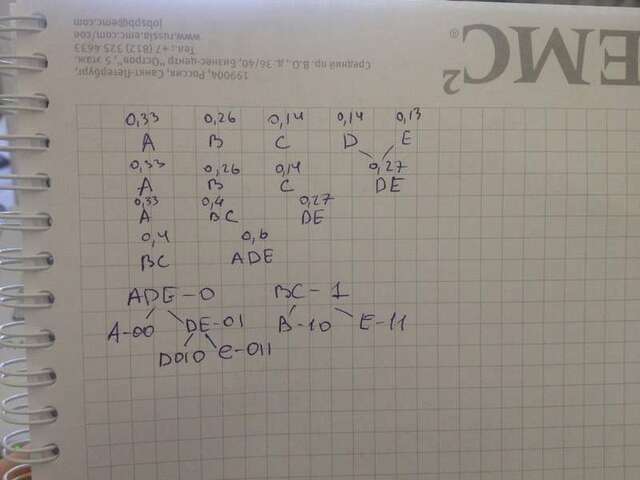 EMC²®
199004, Россия, Санкт-Петербург,
Средний пр. В.О., д. 36/40, Бизнес-центр "Остров", 5 этаж.
Тел.: +7 (812) 325 4633
www.russia.emc.com/coe
jobspb@emc.com
0,33 0,26 0,14 0,14 0,13
A B C D E
0,33 0,26 0,14 0,27
A B C DE
0,33 0,4 0,27
A BC DE
0,4 0,6
BC ADE
ADE-0 BC-1
A-00 DE-01 B-10 E-11
D010 C-011